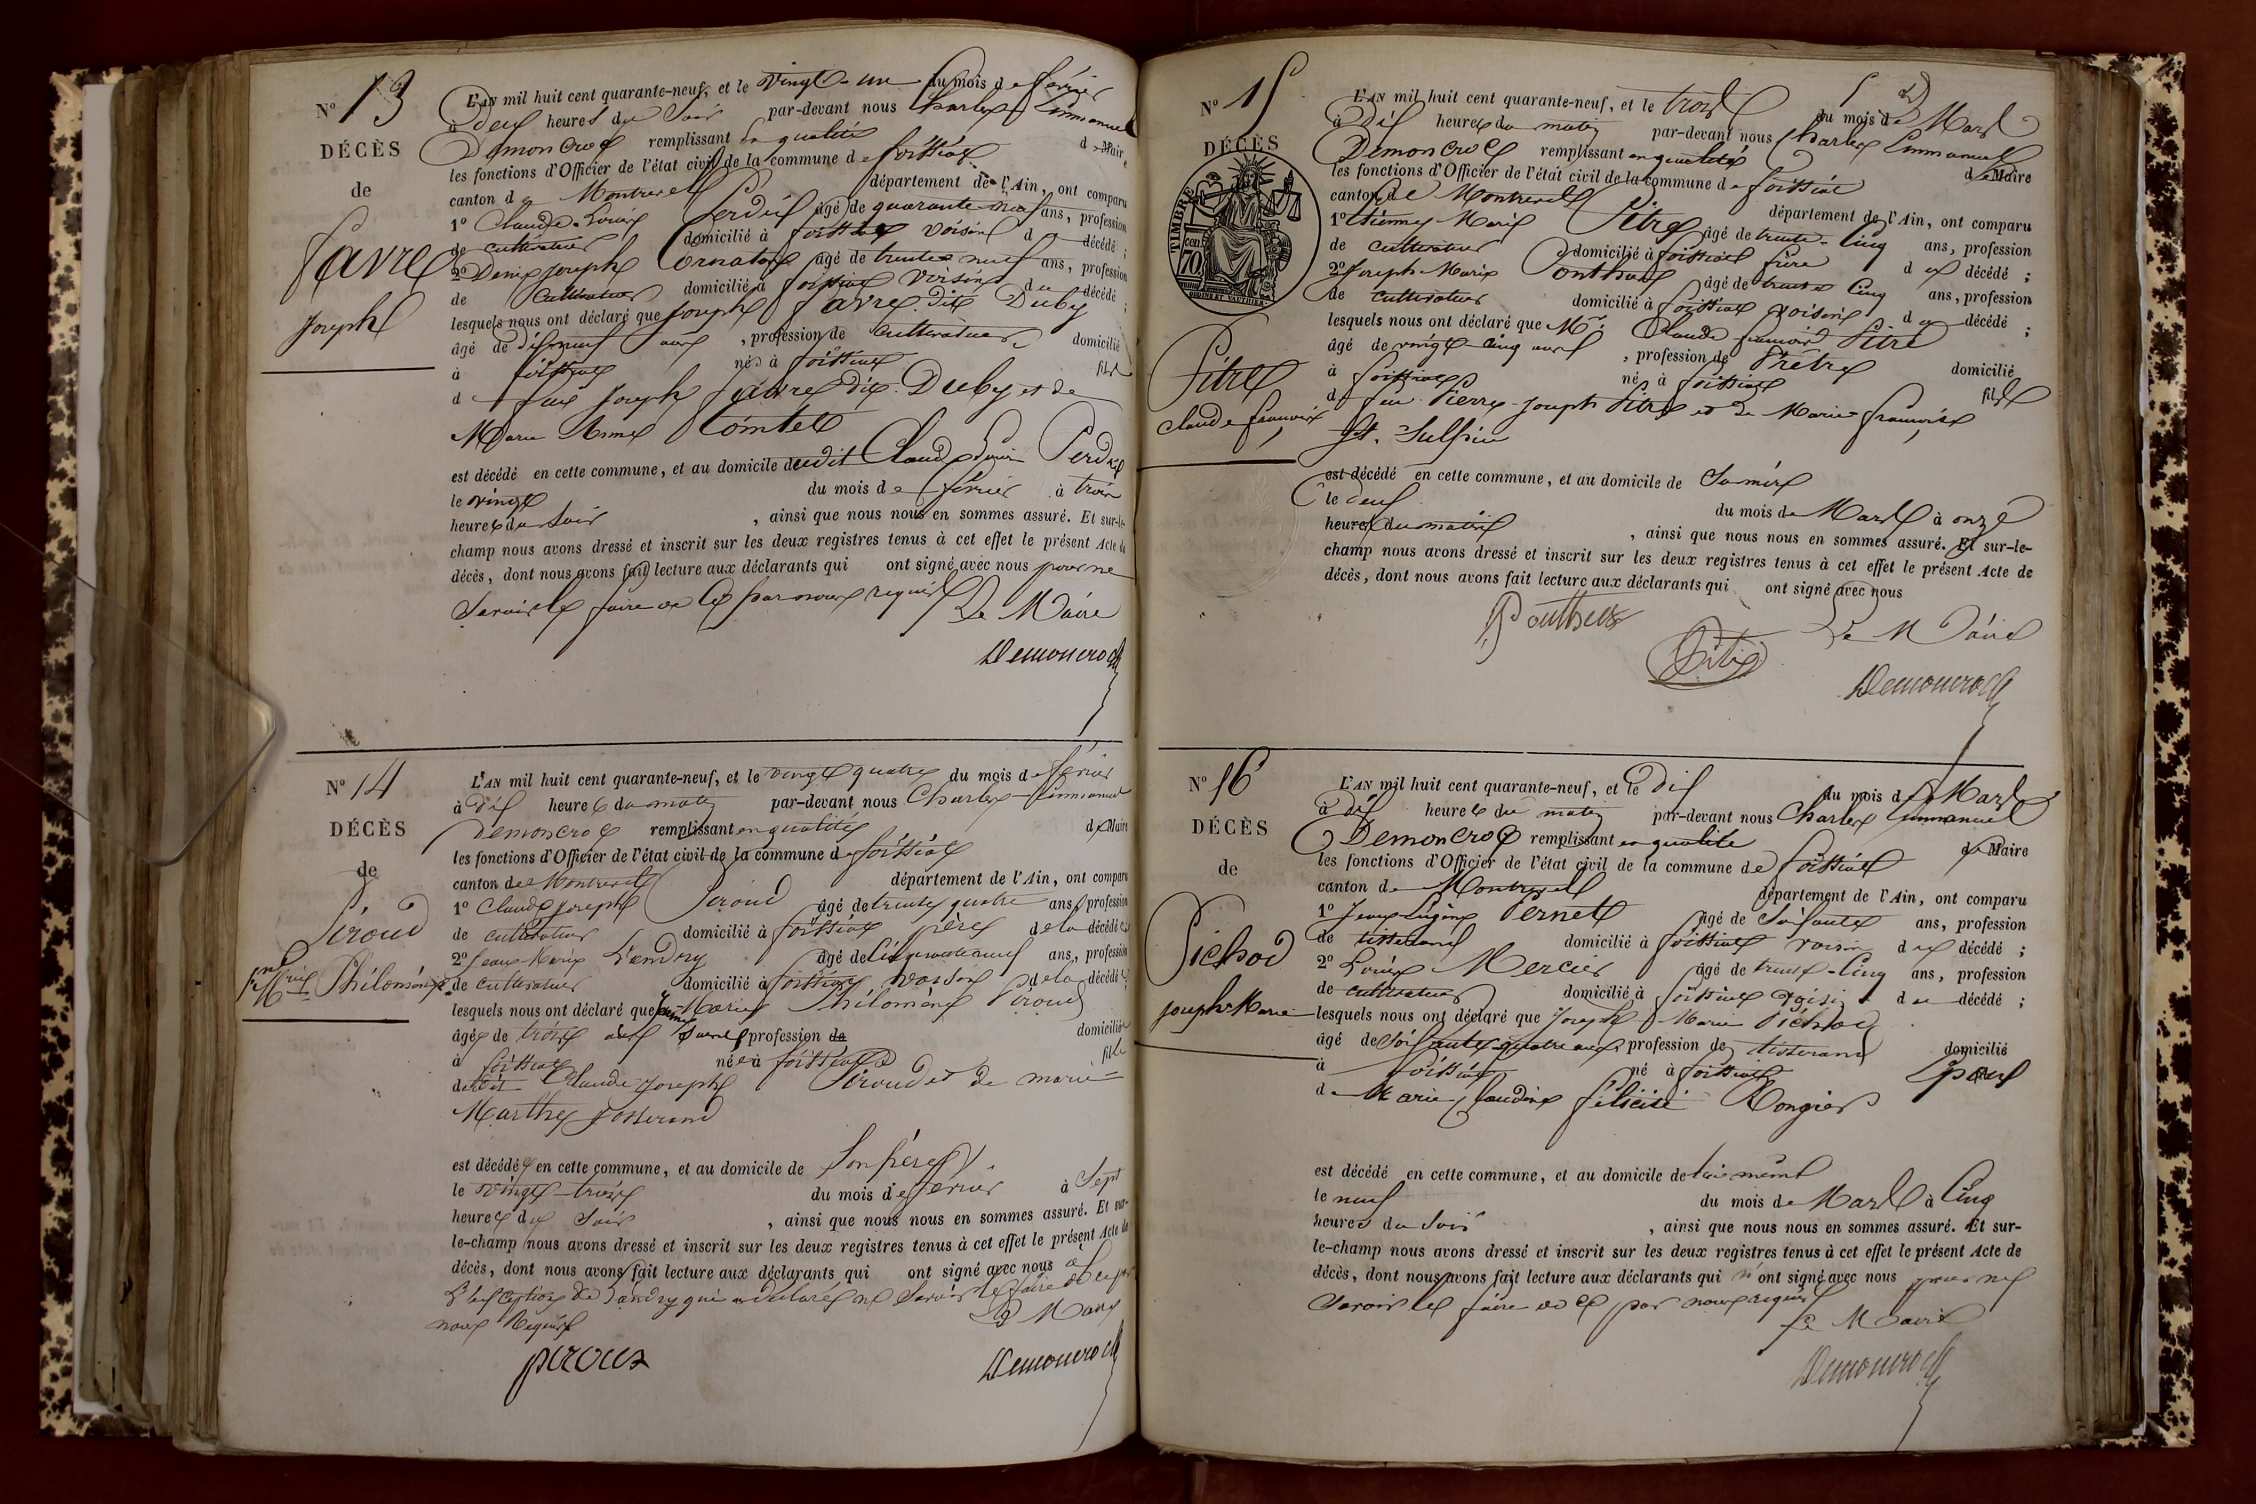 N° 13
DÉCÈS
de
Favre
Joseph
L'AN mil huit cent quarante-neuf, et le vingt-un du mois de février
à deux heures du Soir par-devant nous Charles Emmanuel
Demoncroc remplissant en qualité de Maire
les fonctions d'Officier de l'état civil de la commune de foissiat
canton de Montrevel département de l'Ain, ont comparu
1° Claude Louis Perdrix âgé de quarante neuf ans, profession
de cultivateur domicilié à foissiat voisin du décédé ;
2° Denis Joseph Cornaton âgé de trente neuf ans, profession
de Cultivateur domicilié à foissiat voisin du décédé ;
lesquels nous ont déclaré que Joseph Favre dit Duby
âgé de dixneuf ans, profession de cultivateur domicilié
à foissiat né à foissiat fils
de feu Joseph Favre dit Duby et de
Marie Anne Comtet
est décédé en cette commune, et au domicile dudit Claude Louis Perdrix
le vingt du mois de février à trois
heures du Soir, ainsi que nous nous en sommes assuré. Et sur-le-
champ nous avons dressé et inscrit sur les deux registres tenus à cet effet le présent Acte de
décès, dont nous avons fait lecture aux déclarants qui ont signé avec nous pour ne
Savoir le faire de ce par nous requis Le Maire
Demoncroc
N° 14
DÉCÈS
de
Piroud
Philomène
L'AN mil huit cent quarante-neuf, et le vingt quatre du mois de février
à dix heures du matin par-devant nous Charles Emmanuel
Demoncroc remplissant en qualité de Maire
les fonctions d'Officier de l'état civil de la commune de foissiat
canton de Montrevel département de l'Ain, ont comparu
1° Claude Joseph Piroud âgé de trente quatre ans, profession
de cultivateur domicilié à foissiat père de la décédée
2° Jean Marie Pandry âgé de cinquante neuf ans, profession
de cultivateur domicilié à foissiat voisin de la décédée
lesquels nous ont déclaré que Marie Philomène Piroud
âgée de trois ans profession de domiciliée
à foissiat née à foissiat fille
dudit Claude Joseph Piroud et de marie
Marthe Josserand
est décédée en cette commune, et au domicile de Son père
le vingt-trois du mois de février à Sept
heures du Soir, ainsi que nous nous en sommes assuré. Et sur-
le-champ nous avons dressé et inscrit sur les deux registres tenus à cet effet le présent Acte de
décès, dont nous avons fait lecture aux déclarants qui ont signé avec nous à
L'exception de Pandry qui a déclaré ne Savoir le faire de ce par
nous Requis Le Maire
piroud
Demoncroc
N° 15
DÉCÈS
TIMBRE
70
Pitre
Claude françois
L'AN mil huit cent quarante-neuf, et le trois du mois de Mars
à dix heures du matin par-devant nous Charles Emmanuel
Demoncroc remplissant en qualité de Maire
les fonctions d'Officier de l'état civil de la commune de foissiat
canton de Montrevel département de l'Ain, ont comparu
1° Etienne Marie Pitre âgé de trente-cinq ans, profession
de cultivateur domicilié à foissiat frère du décédé ;
2° Joseph Marie Ponthus âgé de trente cinq ans, profession
de cultivateur domicilié à foissiat voisin du décédé ;
lesquels nous ont déclaré que Mr. Claude françois Pitre
âgé de vingt cinq ans, profession de Prêtre domicilié
à foissiat né à foissiat fils
de feu Pierre Joseph Pitre et de Marie françoise
St. Sulpice
est décédé en cette commune, et au domicile de Sa mère
le deux du mois de Mars à onze
heures du matin, ainsi que nous nous en sommes assuré. Et sur-le-
champ nous avons dressé et inscrit sur les deux registres tenus à cet effet le présent Acte de
décès, dont nous avons fait lecture aux déclarants qui ont signé avec nous
Ponthus
Le Maire
Pitre
Demoncroc
N° 16
DÉCÈS
de
Pichod
Joseph Marie
L'AN mil huit cent quarante-neuf, et le dix du mois de Mars
à dix heures du matin par-devant nous Charles Emmanuel
Demoncroc remplissant en qualité de Maire
les fonctions d'Officier de l'état civil de la commune de foissiat
canton de Montrevel département de l'Ain, ont comparu
1° Jean Eugène Pernet âgé de Soixante ans, profession
de tisserand domicilié à foissiat voisin du décédé ;
2° Louis Mercier âgé de trente-cinq ans, profession
de cultivateur domicilié à foissiat voisin du décédé ;
lesquels nous ont déclaré que Joseph Marie Pichod
âgé de Soixante quatre ans, profession de tisserand domicilié
à foissiat né à foissiat Epoux
de Marie Claudine félicité Rongier
est décédé en cette commune, et au domicile de lui même
le neuf du mois de Mars à Cinq
heures du Soir, ainsi que nous nous en sommes assuré. Et sur-
le-champ nous avons dressé et inscrit sur les deux registres tenus à cet effet le présent Acte de
décès, dont nous avons fait lecture aux déclarants qui n'ont signé avec nous pour ne
Savoir le faire de ce par nous requis
Le Maire
Demoncroc